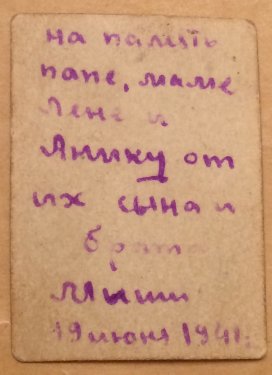 на память
папе, маме
Лене и
Янику от
их сына и
брата
Миши
19 июня 1941.